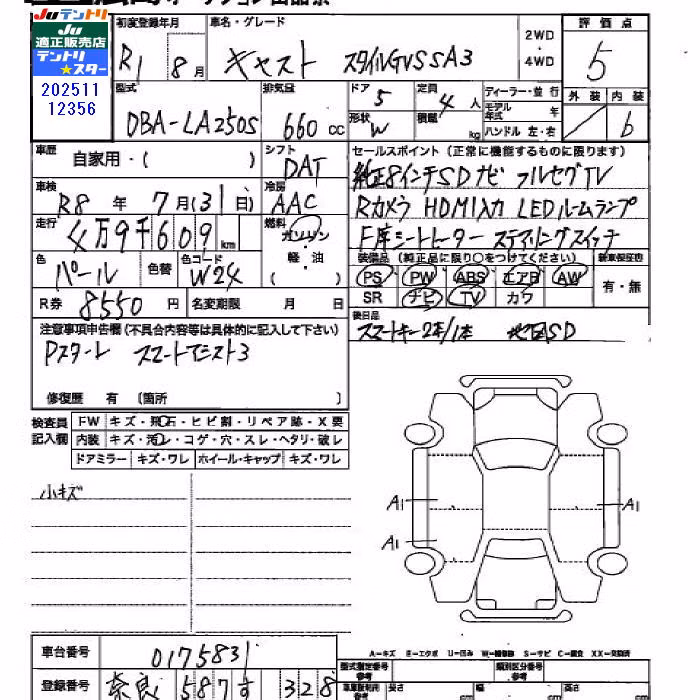 Juテントリ
Ju
適正販売店
テントリ
★スター
202511
12356
初度登録年月
R1 8月
車名・グレード
キャスト スタイルGVSSA3
2WD
・
4WD
評価点
5
外装 内装
b
型式
DBA-LA250S
排気量
660 cc
ドア
5
形状
W
定員
4人
積載
kg
ディーラー・並行
モデル年式 年
ハンドル 左・右
車歴
自家用・( )
シフト
DAT
車検
R8年 7月(31日)
冷房
AAC
走行
4万9千609km
燃料
ガソリン
・
軽・油
( )
色
パール
色替
色コード
W24
R券 8550円
名変期限 月 日
セールスポイント (正常に機能するものに限ります)
純正8インチSDナビ フルセグTV
Rカメラ HDMI入力 LEDルームランプ
F席シートヒーター ステアリングスイッチ
装備品 (純正品に限り○をつけてください)
PS PW ABS エアB AW
SR ナビ TV カワ
新車保証書
有・無
後日品
スマートキー2本/1本 地図SD
注意事項申告欄(不具合内容等は具体的に記入して下さい)
Pスタート スマートアシスト3
修復歴 有 〔箇所 〕
検査員
記入欄
FW キズ・飛石・ヒビ割・リペア跡・X要
内装 キズ・汚レ・コゲ・穴・スレ・ヘタリ・破レ
ドアミラー キズ・ワレ ホイール・キャップ キズ・ワレ
小キズ
A1
A1
A1
A-キズ E-エクボ U-凹み W-補修跡 S-サビ C-腐食 XX-交換済
車台番号
0175831
登録番号
奈良 587す 328
型式指定番号
参考
類別区分番号
参考
長さ
cm
幅
cm
高さ